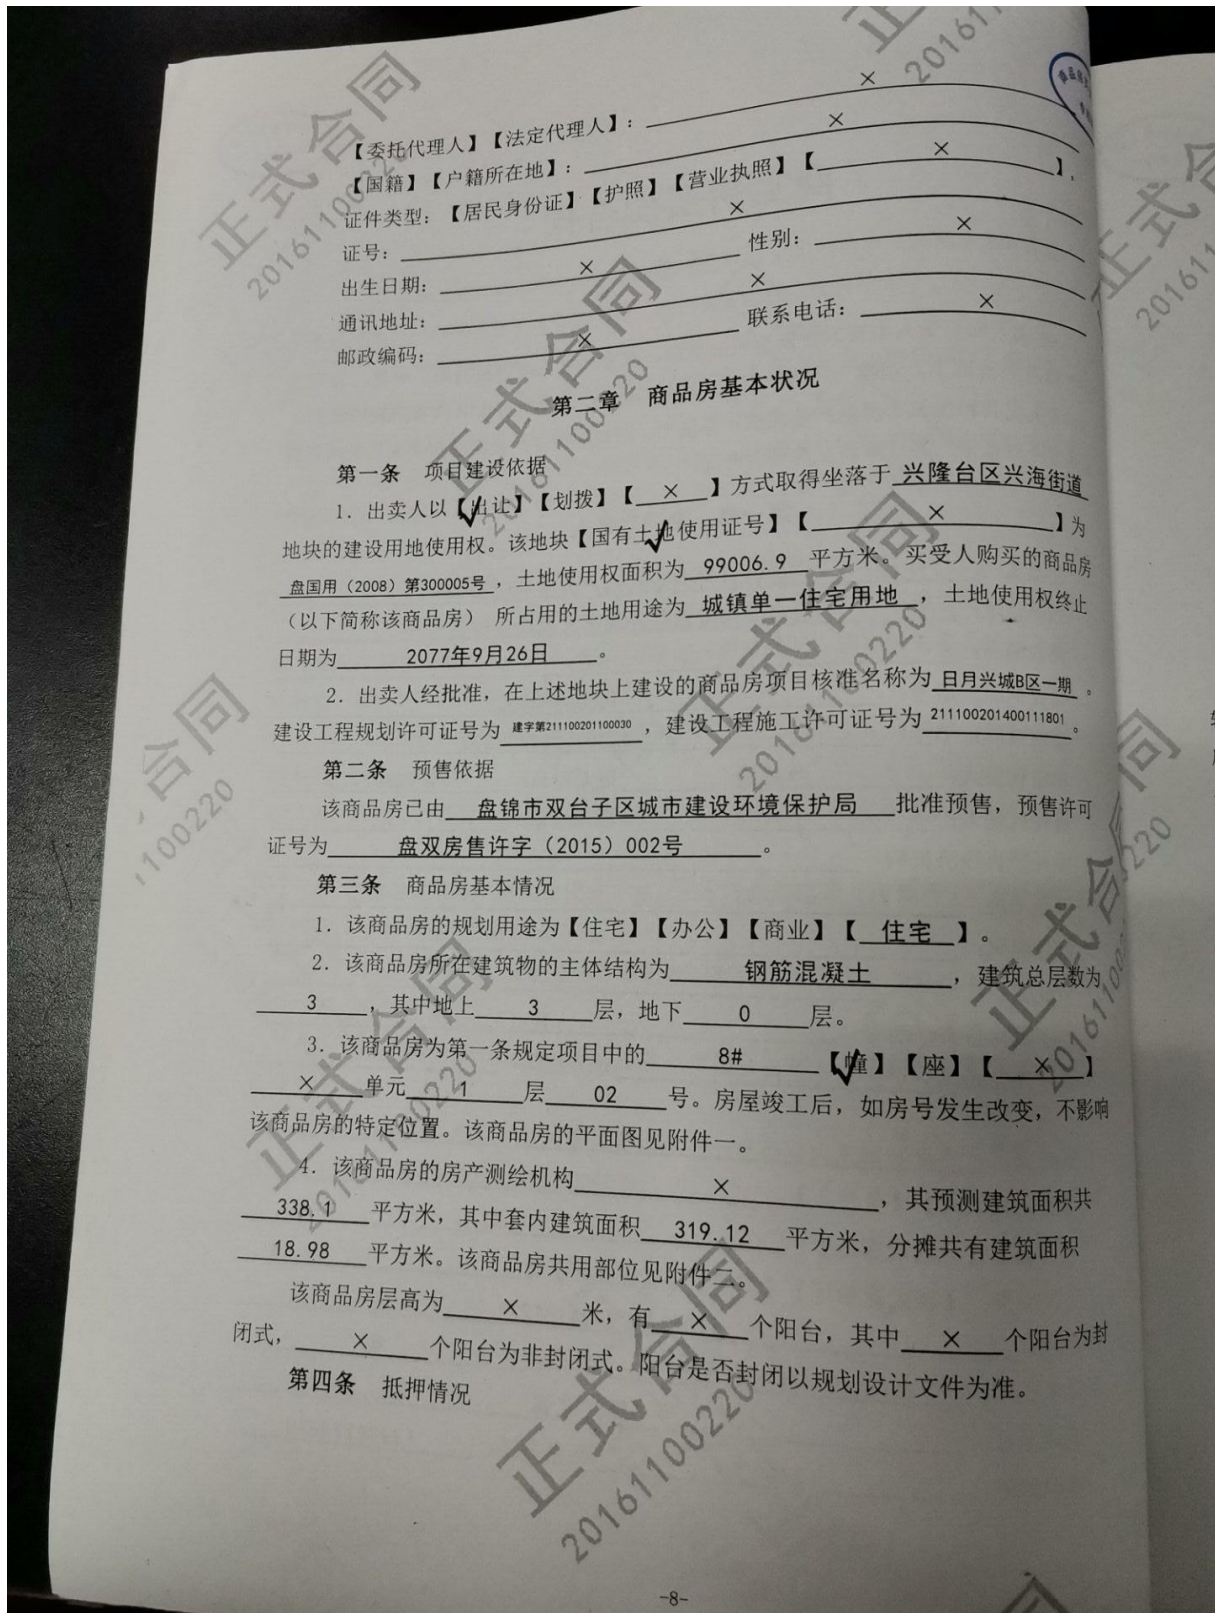 正式合同
201611100220
【委托代理人】【法定代理人】：×
【国籍】【户籍所在地】：×
证件类型：【居民身份证】【护照】【营业执照】【×】，
证号：×
出生日期：× 性别：×
通讯地址：×
邮政编码：× 联系电话：×
第二章 商品房基本状况
第一条 项目建设依据
1. 出卖人以【出让】【划拨】【×】方式取得坐落于 兴隆台区兴海街道
地块的建设用地使用权。该地块【国有土地使用证号】【×】为
盘国用（2008）第300005号，土地使用权面积为 99006.9 平方米。买受人购买的商品房
（以下简称该商品房）所占用的土地用途为 城镇单一住宅用地，土地使用权终止
日期为 2077年9月26日。
2. 出卖人经批准，在上述地块上建设的商品房项目核准名称为 日月兴城B区一期。
建设工程规划许可证号为 建字第211100201100030，建设工程施工许可证号为 211100201400111801。
第二条 预售依据
该商品房已由 盘锦市双台子区城市建设环境保护局 批准预售，预售许可
证号为 盘双房售许字（2015）002号。
第三条 商品房基本情况
1. 该商品房的规划用途为【住宅】【办公】【商业】【住宅】。
2. 该商品房所在建筑物的主体结构为 钢筋混凝土，建筑总层数为
3，其中地上 3 层，地下 0 层。
3. 该商品房为第一条规定项目中的 8# 【幢】【座】【×】
× 单元 1 层 02 号。房屋竣工后，如房号发生改变，不影响
该商品房的特定位置。该商品房的平面图见附件一。
4. 该商品房的房产测绘机构 ×，其预测建筑面积共
338.1 平方米，其中套内建筑面积 319.12 平方米，分摊共有建筑面积
18.98 平方米。该商品房共用部位见附件二。
该商品房层高为 × 米，有 × 个阳台，其中 × 个阳台为封
闭式，× 个阳台为非封闭式。阳台是否封闭以规划设计文件为准。
第四条 抵押情况
-8-